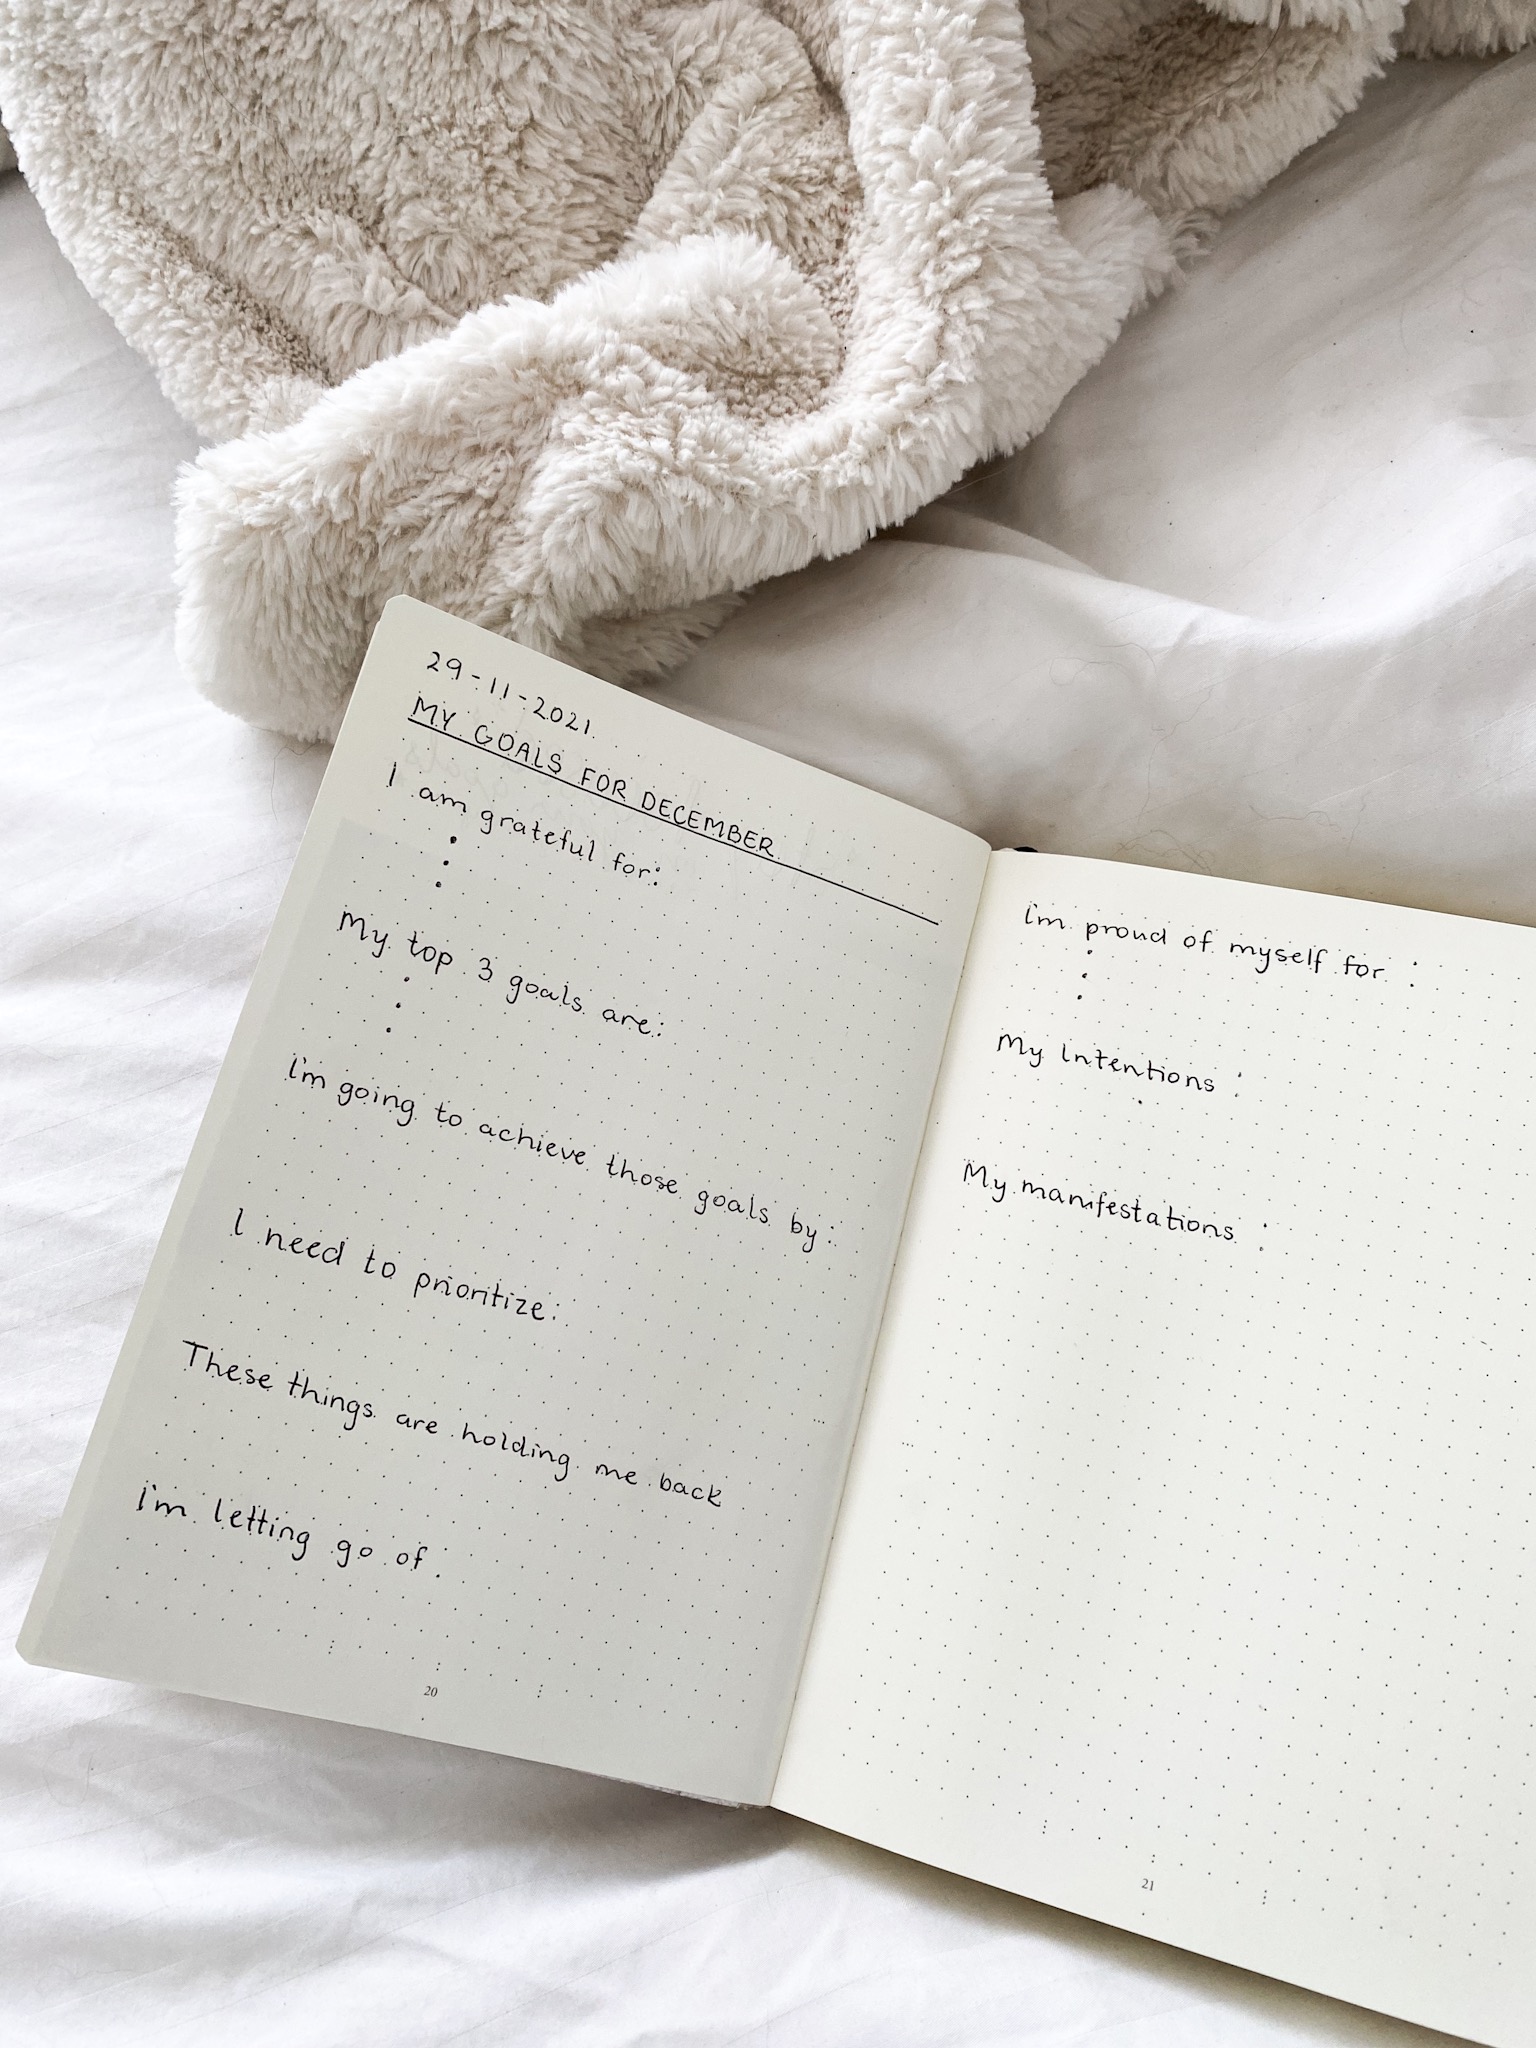 29-11-2021
MY GOALS FOR DECEMBER
I am grateful for:
•
•
•
My top 3 goals are:
•
•
•
I'm going to achieve those goals by:
I need to prioritize:
These things are holding me back
I'm letting go of:
20
I'm proud of myself for :
•
•
•
My intentions :
My manifestations :
21